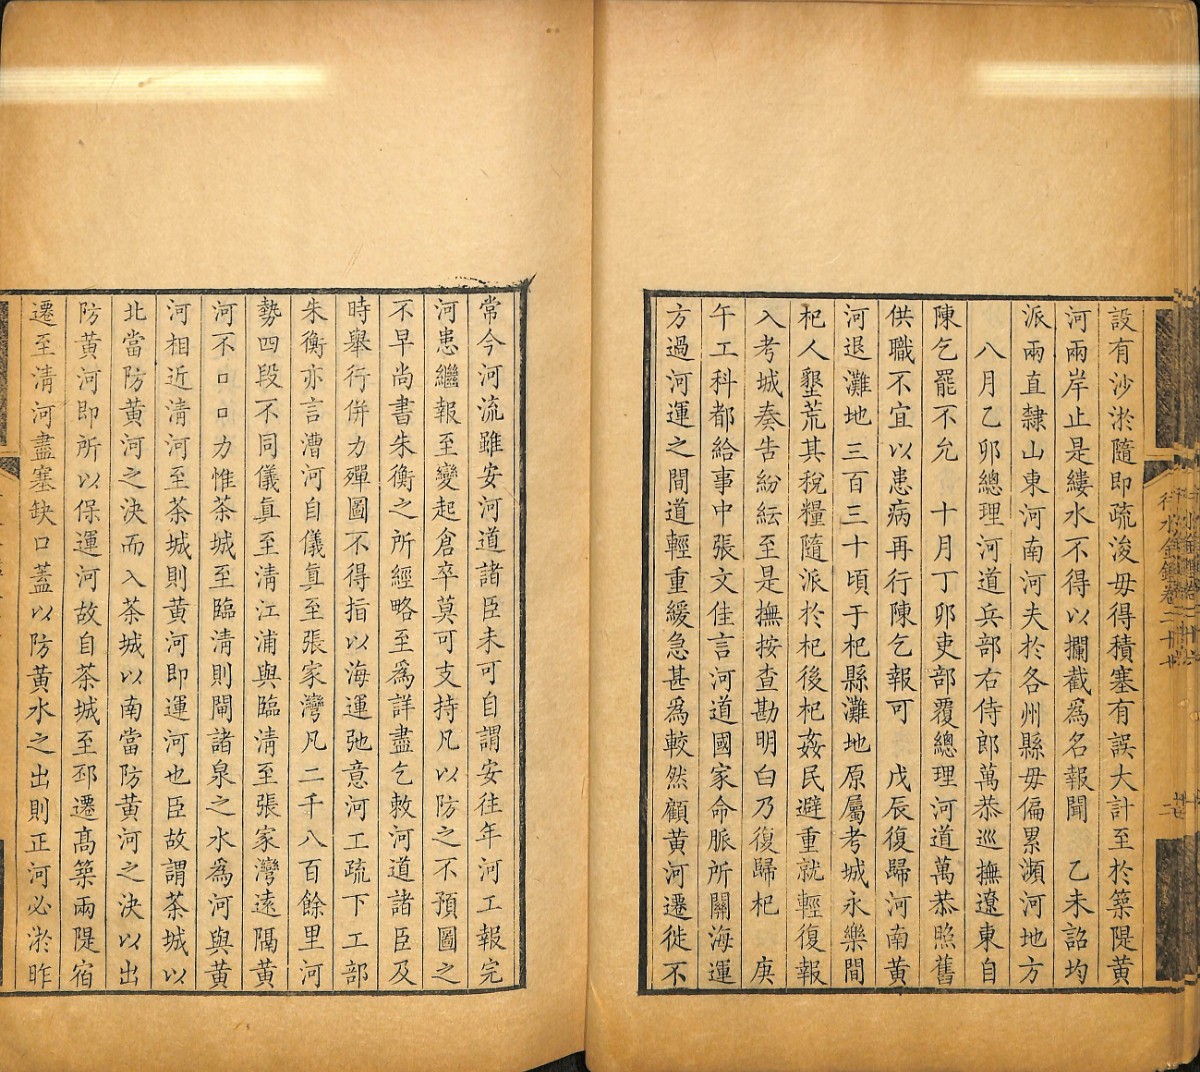 設有沙淤隨即疏浚毋得積塞有誤大計至於築隄黃
河兩岸止是縷水不得以攔截為名報聞　乙未詔均
派兩直隸山東河南河夫於各州縣毋偏累瀕河地方
八月乙卯總理河道兵部右侍郎萬恭巡撫遼東自
陳乞罷不允　十月丁卯吏部覆總理河道萬恭照舊
供職不宜以患病再行陳乞報可　戊辰復歸河南黃
河退灘地三百三十頃于杞縣灘地原屬考城永樂間
杞人墾荒其稅糧隨派於杞後杞姦民避重就輕復報
入考城奏告紛紜至是撫按查勘明白乃復歸杞　庚
午工科都給事中張文佳言河道國家命脈所關海運
方過河運之間道輕重緩急甚為較然顧黃河遷徙不
常今河流雖安河道諸臣未可自謂安往年河工報完
河患繼報至變起倉卒莫可支持凡以防之不預圖之
不早尚書朱衡之所經略至為詳盡乞敕河道諸臣及
時舉行併力殫圖不得指以海運弛意河工疏下工部
朱衡亦言漕河自儀真至張家灣凡二千八百餘里河
勢四段不同儀真至清江浦與臨清至張家灣遠隔黃
河不口口力惟茶城至臨清則閘諸泉之水為河與黃
河相近清河至茶城則黃河即運河也臣故謂茶城以
北當防黃河之決而入茶城以南當防黃河之決以出
防黃河即所以保運河故自茶城至邳遷高築兩隄宿
遷至清河盡塞缺口蓋以防黃水之出則正河必淤昨
行水金鑑卷二十七
二